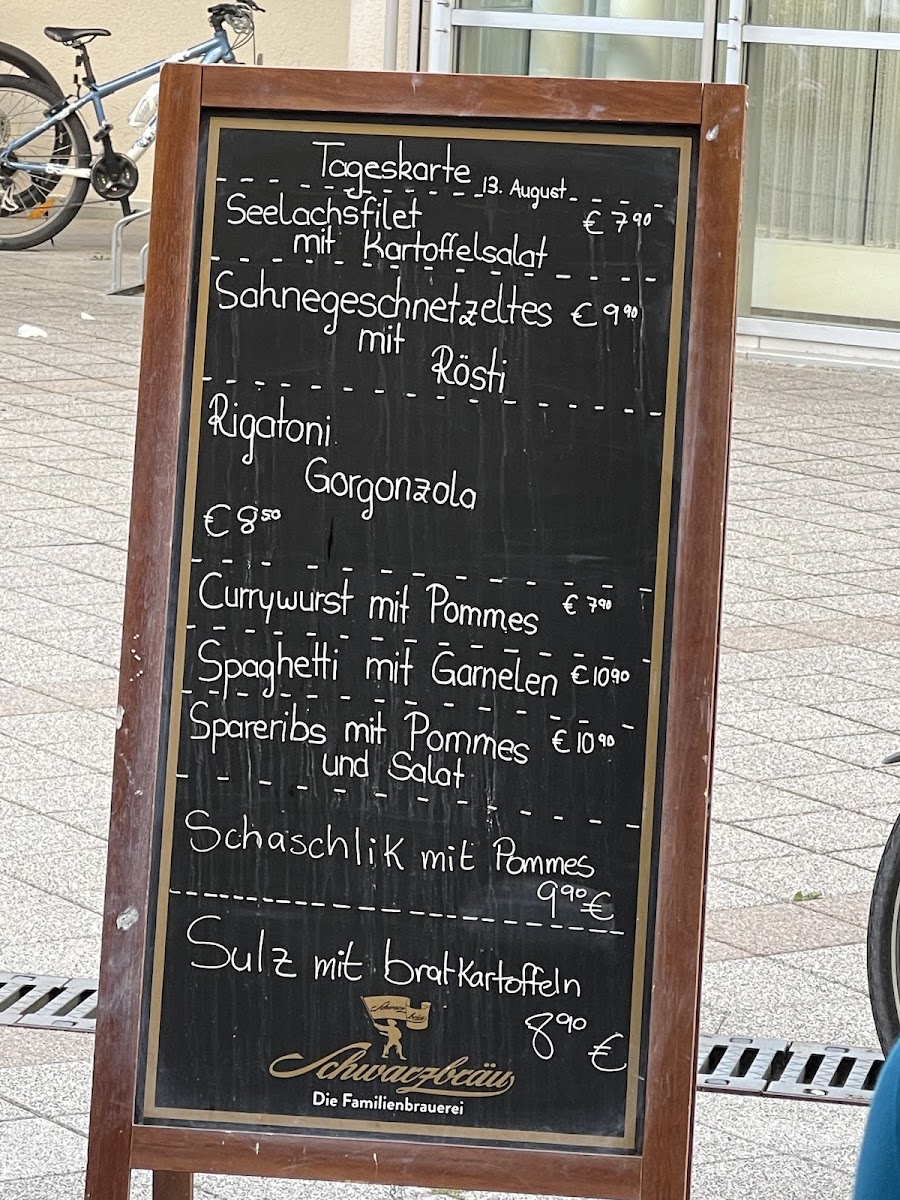 Tageskarte 13. August
Seelachsfilet € 7⁹⁰
mit Kartoffelsalat
Sahnegeschnetzeltes € 9⁹⁰
mit
Rösti
Rigatoni
Gorgonzola
€ 8⁵⁰
Currywurst mit Pommes € 7⁹⁰
Spaghetti mit Garnelen € 10⁹⁰
Spareribs mit Pommes € 10⁹⁰
und Salat
Schaschlik mit Pommes
9⁹⁰ €
Sulz mit bratkartoffeln
8⁹⁰ €
Schwarzbräu
Schwarzbräu
Die Familienbrauerei